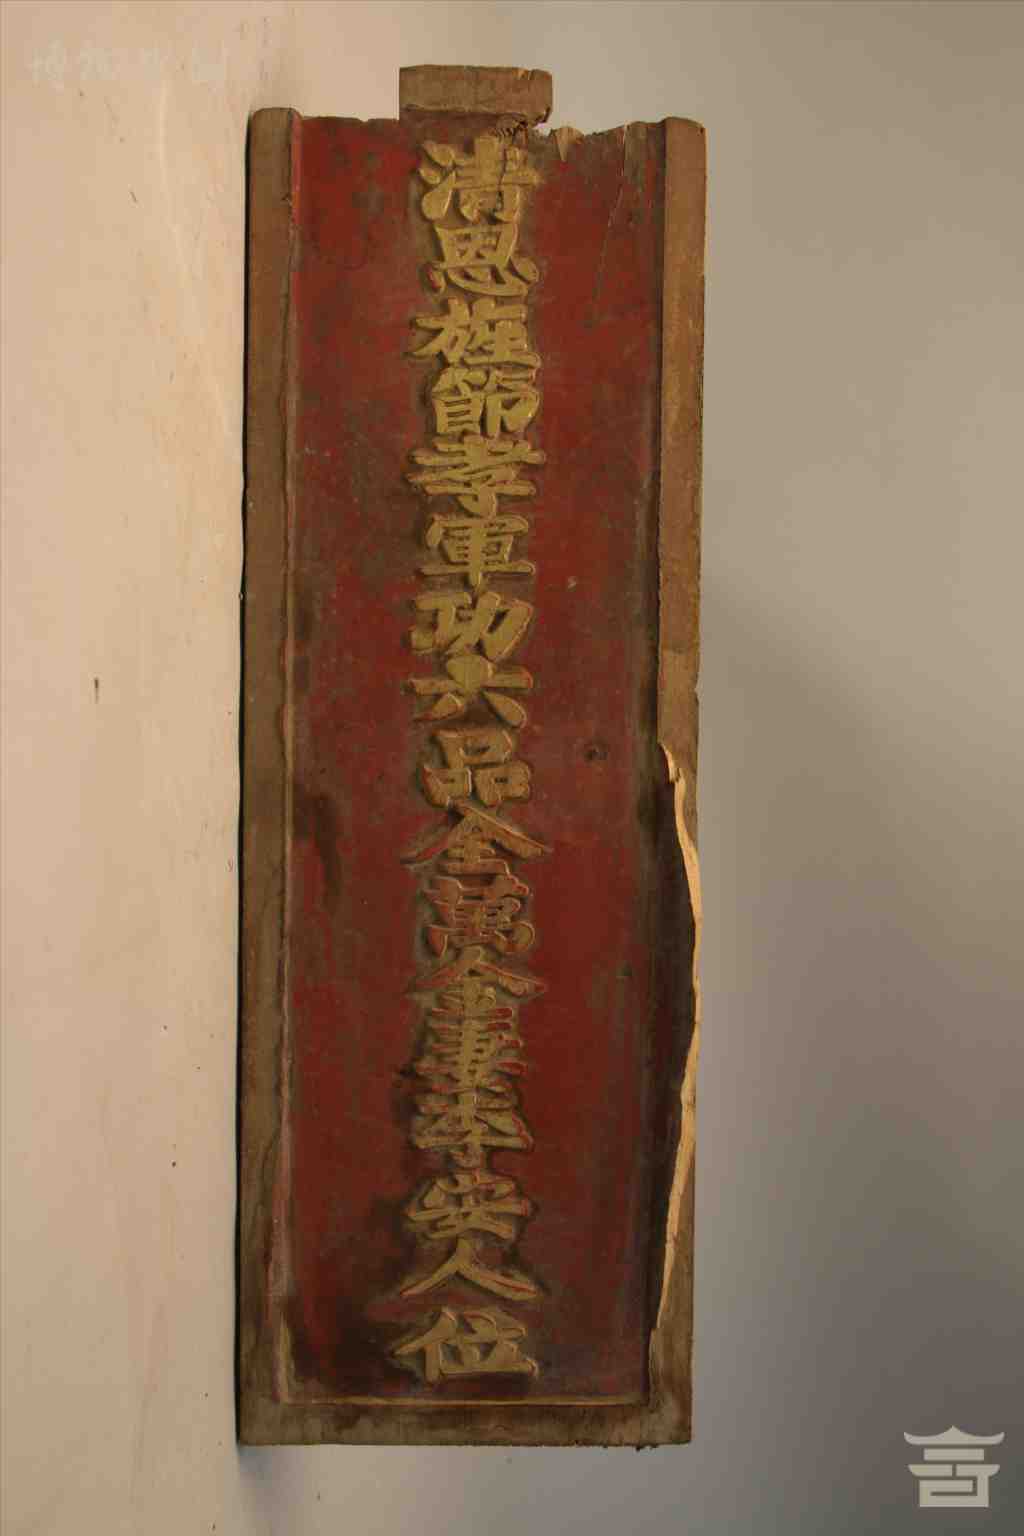 清恩旌節孝軍功六品全萬全妻李安人位